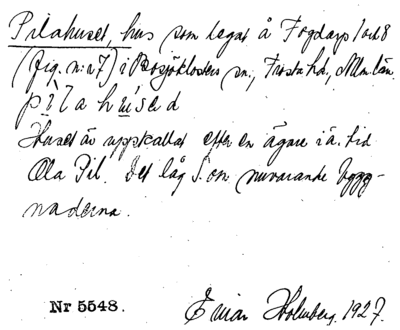 Pilahuset, hus som legat å Fogdarp 1 och 8
(fig. n:r 7) i Bosjöklosters sn., Frosta hd., Mlm. län.
pìlahúsəd
Huset är uppkallat efter en ägare i ä. tid
Ola Pil. Det låg S. om nuvarande bygg-
naderna.
Nr 5548. Einar Holmberg. 1927.